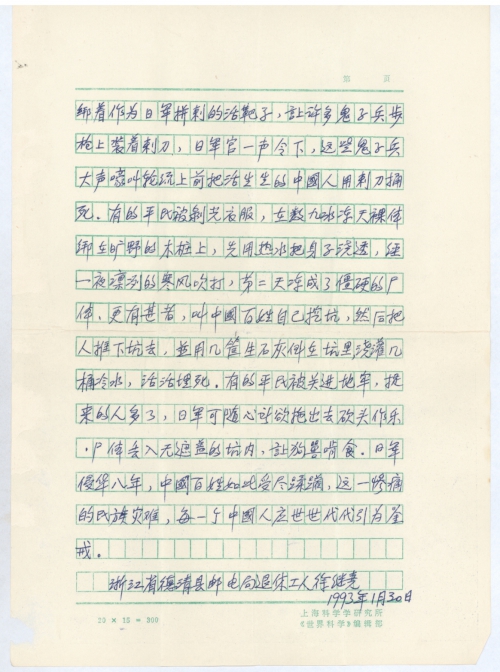 第 页
绑着作为日军拼刺的活靶子，让许多鬼子兵步
枪上装着刺刀，日军官一声令下，这些鬼子兵
大声嚎叫轮流上前把活生生的中國人用刺刀捅
死。有的平民被剝光衣服，在数九冰冻天裸体
绑在旷野的木桩上，先用热水把身子浇透，经
一夜凛冽的寒风吹打，第二天冻成了僵硬的尸
体。更有甚者，叫中國百姓自已挖坑，然后把
人推下坑去，並用几筐生石灰倒在坑里浇灌几
桶冷水，活活埋死。有的平民被关进地牢，捉
来的人多了，日军可随心所欲拖出去砍头作乐
，尸体丢入无遮盖的坑内，让狗兽啃食。日军
侵华八年，中國百姓如此受尽蹂躏，这一惨痛
的民族灾难，每一个中國人应世世代代引为鉴
戒。
浙江省德清县邮电局退休工人徐继尧
1993年1月30日
20 × 15 = 300
上海科学学研究所
《世界科学》编辑部